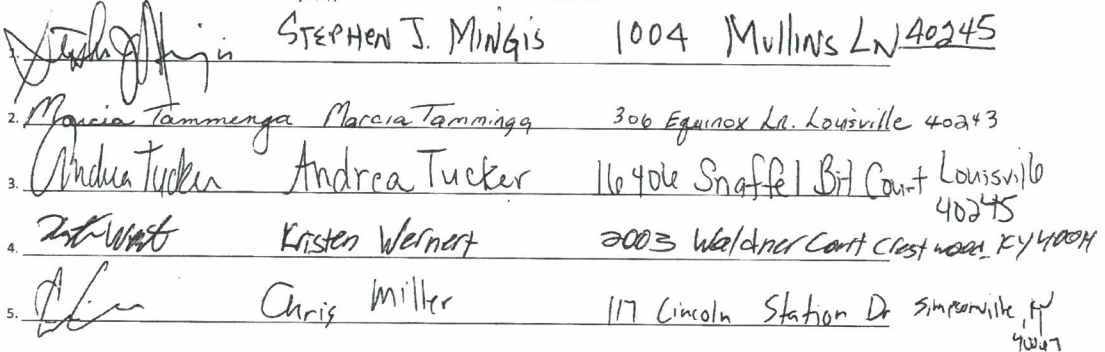 1. Stephen J Mingis STEPHEN J. MINGIS 1004 MULLINS LN 40245
2. Marcia Tammenga Marcia Tamminga 306 Equinox Ln. Louisville 40243
3. Andrea Tucker Andrea Tucker 16406 Snaffel Bit Court Louisville
40245
4. Kristen Wernert 2003 Waldner Court Crestwood, KY 40014
5. Chris Miller 117 Lincoln Station Dr Simpsonville, KY
40067